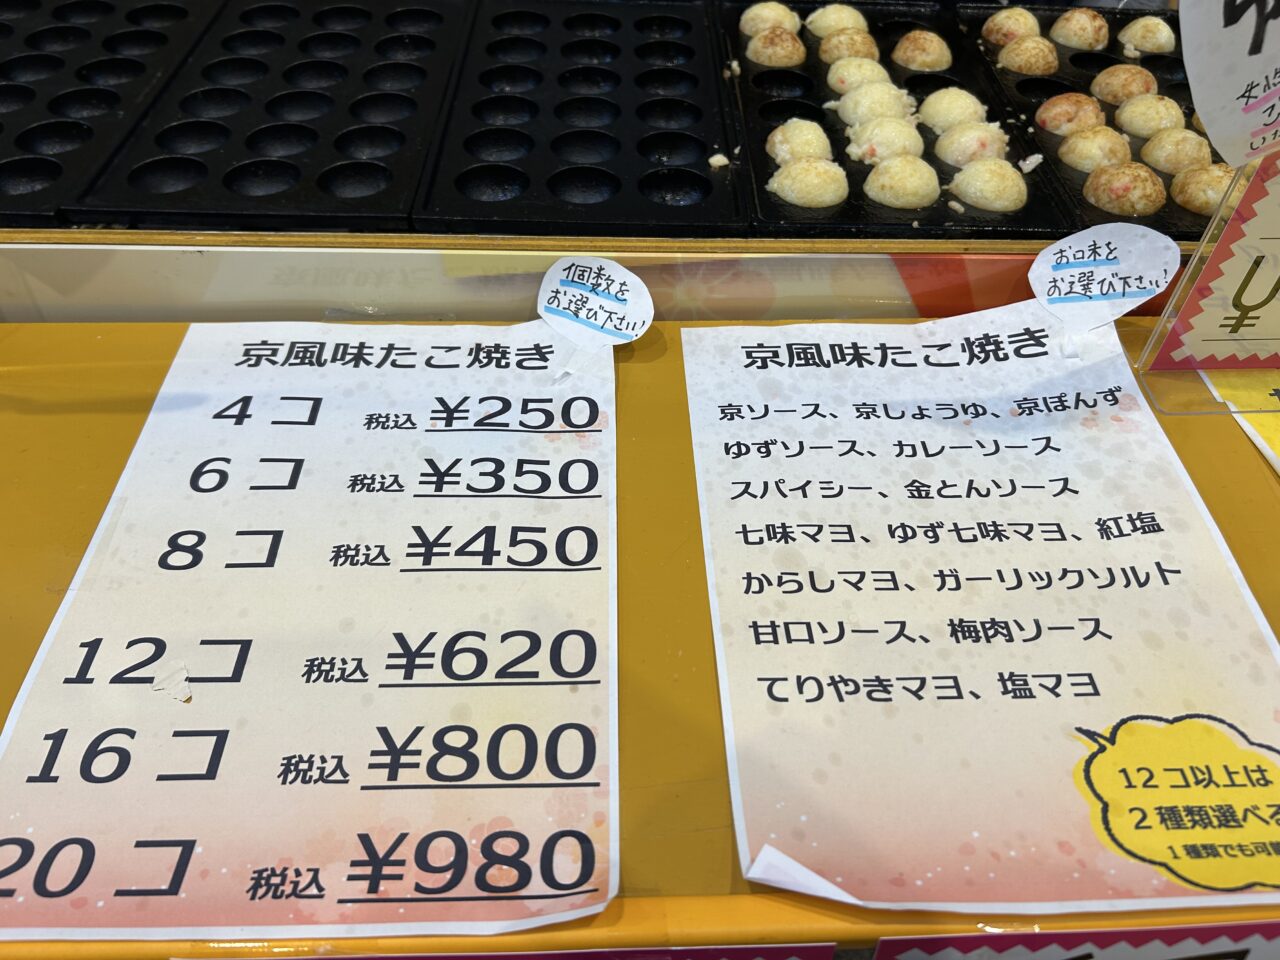 個数を
お選び下さい!
京風味たこ焼き
4コ 税込 ¥250
6コ 税込 ¥350
8コ 税込 ¥450
12コ 税込 ¥620
16コ 税込 ¥800
20コ 税込 ¥980
お口味を
お選び下さい!
京風味たこ焼き
京ソース、京しょうゆ、京ぽんず
ゆずソース、カレーソース
スパイシー、金とんソース
七味マヨ、ゆず七味マヨ、紅塩
からしマヨ、ガーリックソルト
甘口ソース、梅肉ソース
てりやきマヨ、塩マヨ
12コ以上は
2種類選べる
1種類でも可能
¥